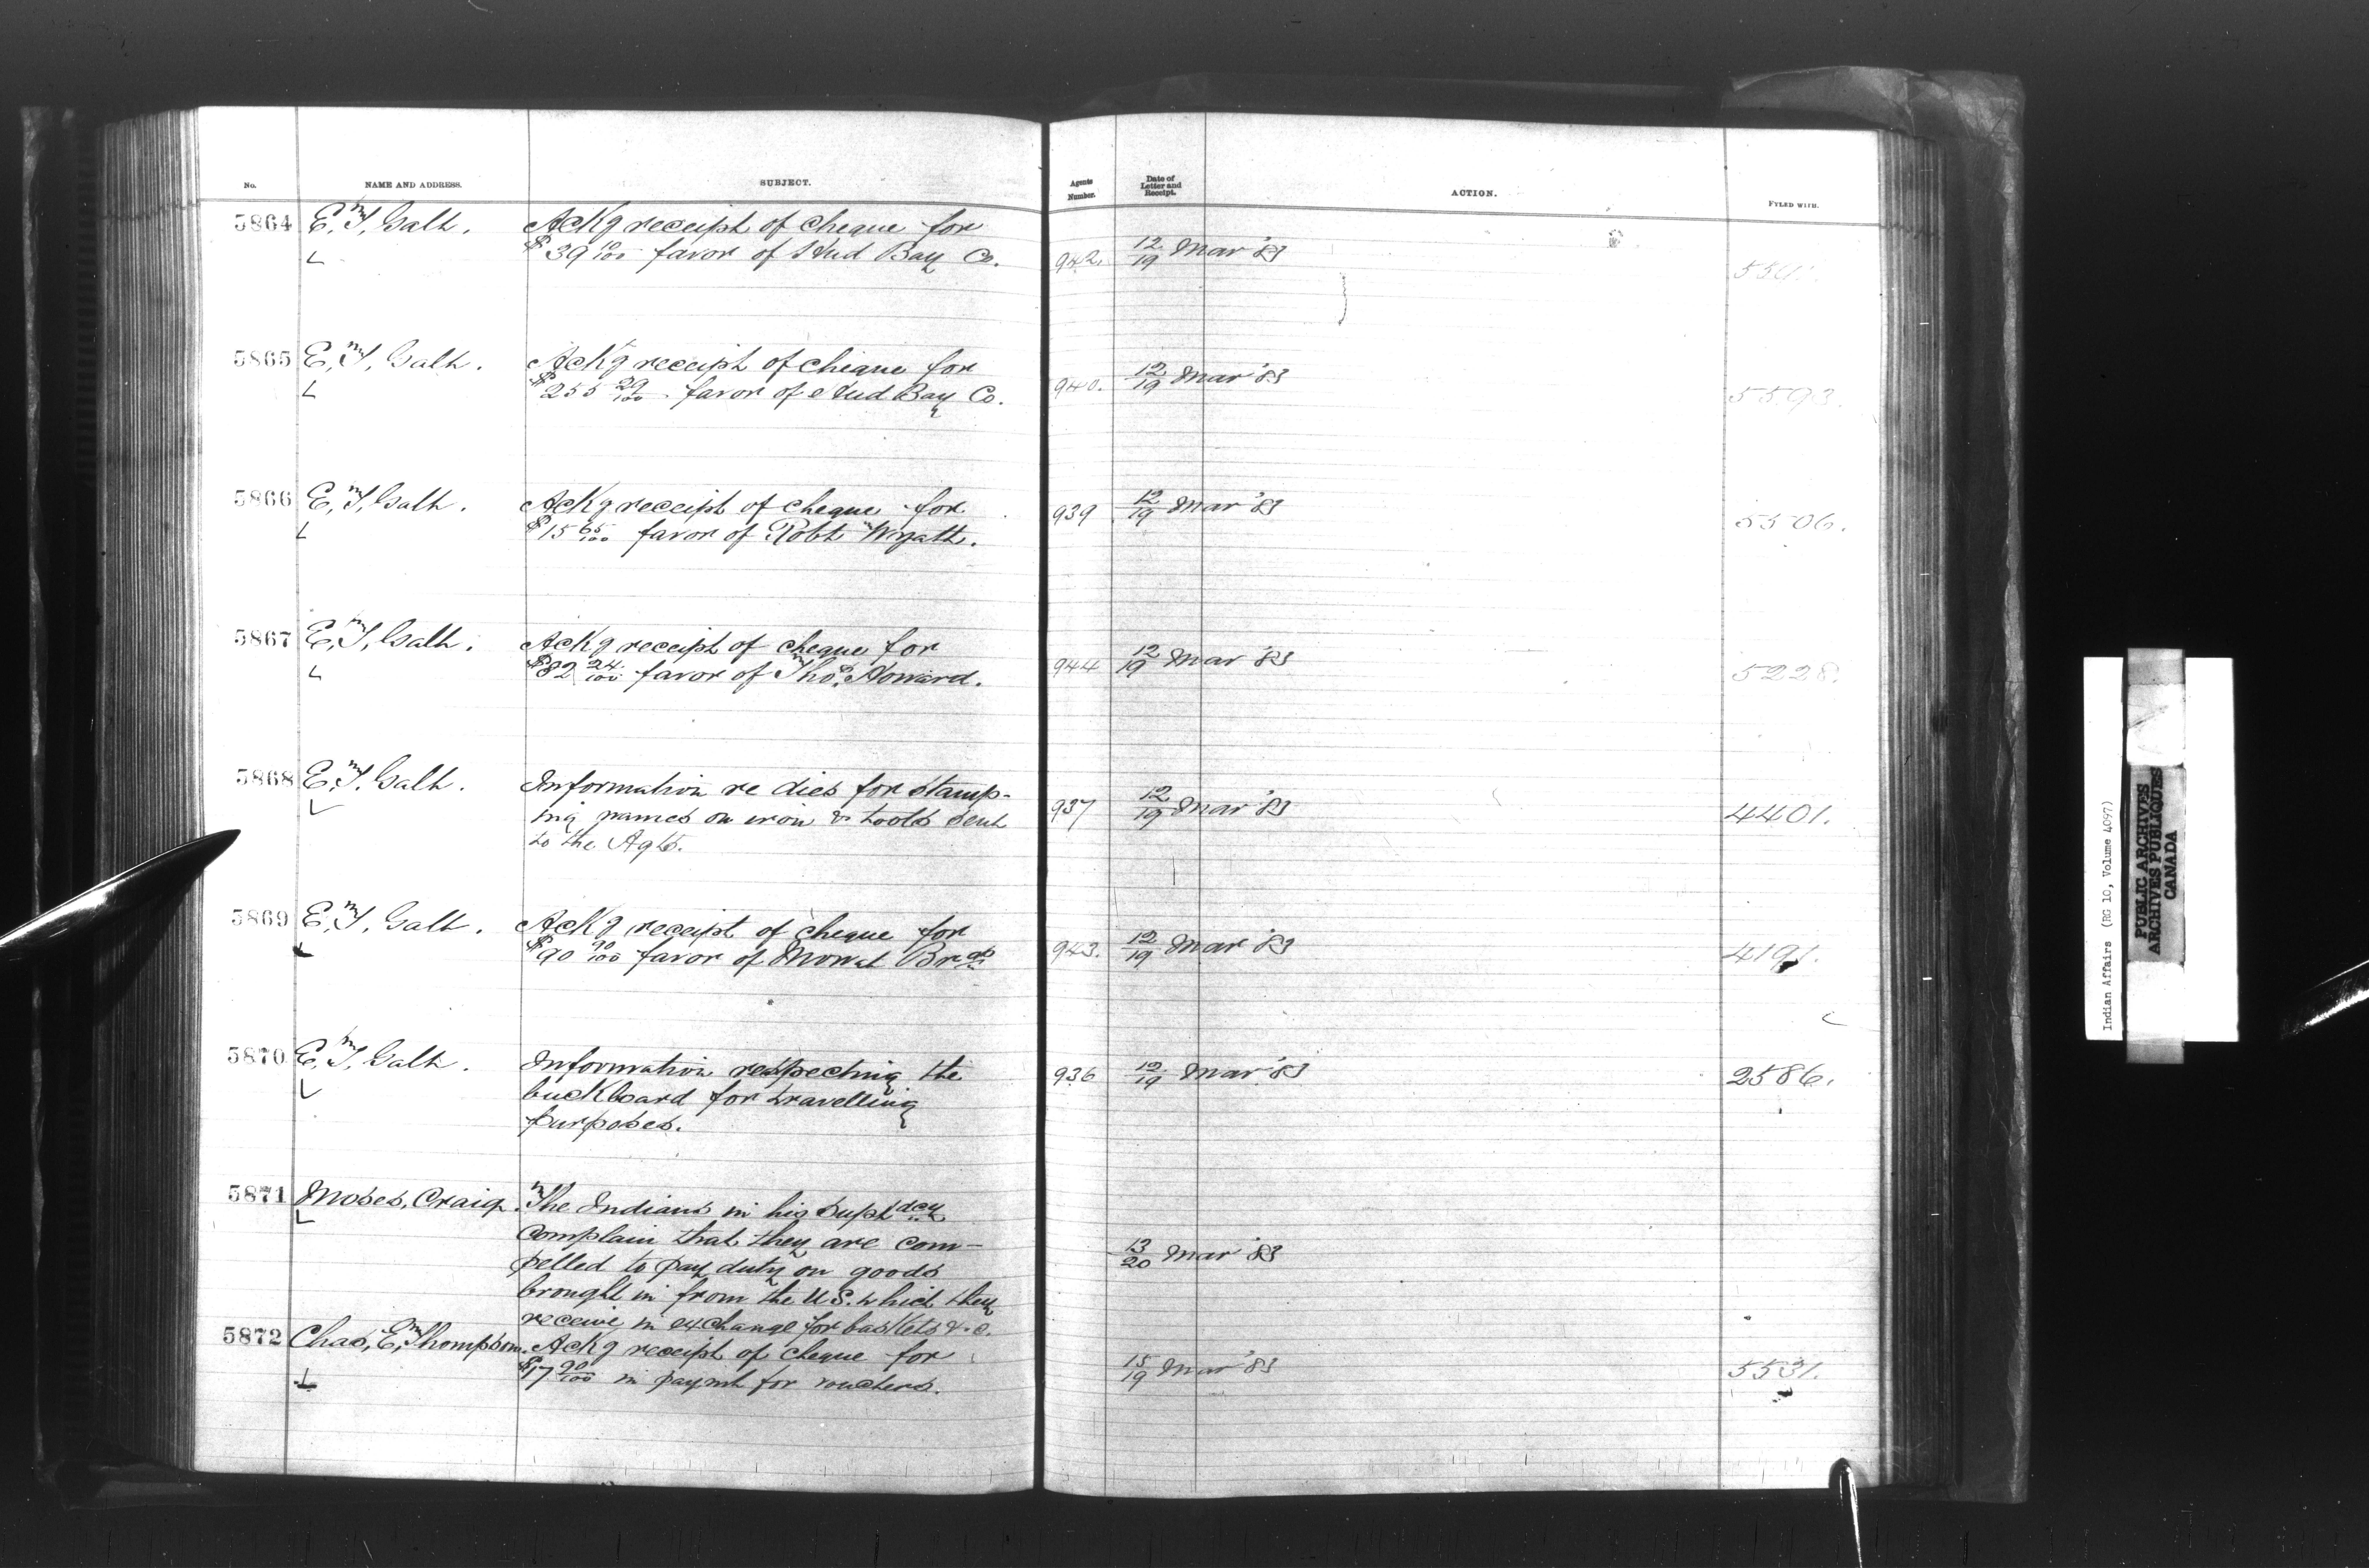 No. NAME AND ADDRESS. SUBJECT. Agents Number. Date of Letter and Receipt. ACTION. FYLED WITH.
5864 E. T. Galt. Ackg receipt of cheque for
$39 10/100 favor of Hud Bay Co. 942. 12/19 Mar '83
5865 E. T. Galt. Ackg receipt of cheque for
$255 29/100 favor of Hud Bay Co. 940. 12/19 Mar '83 5593.
5866 E. T. Galt. Ackg receipt of cheque for
$15 65/100 favor of Robt Wyatt. 939 12/19 Mar '83 5506.
5867 E. T. Galt. Ackg receipt of cheque for
$82 24/100 favor of Thos. Howard. 944 12/19 Mar '83 5228.
5868 E. T. Galt. Information re dies for stamp-
ing names on iron & tools sent 937 12/19 Mar '83 4401.
to the Agts.
5869 E. T. Galt. Ackg receipt of cheque for
$90 90/100 favor of Mowat Bros 943. 12/19 Mar '83 4191.
5870 E. T. Galt. Information respecting the 936 12/19 Mar '83 2586.
buckboard for travelling
purposes.
5871 Moses, Craig. The Indians in his Supt dcy
complain that they are com-
pelled to pay duty on goods 13/20 Mar '83
brought in from the U S. which they
receive in exchange for baskets &.c.
5872 Chas, E, Thompson. Ackg receipt of cheque for
$17 90/100 in paymt for vouchers. 15/19 Mar '83 5531.
Indian Affairs (RG 10, Volume 4097)
PUBLIC ARCHIVES
ARCHIVES PUBLIQUES
CANADA